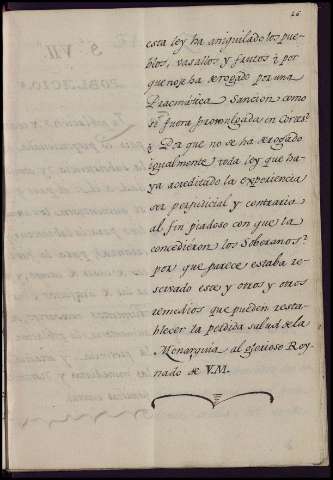 26
esta ley ha aniquilado los pue-
blos, vasallos y frutos? ¿por
que no se ha derogado por una
Pracmática Sancion como
si fuera promulgada en Cortes?
¿Por que no se ha derogado
igualmente toda ley que ha-
ya acreditado la experiencia
ser perjudicial y contraria
al fin piadoso con que la
concedieron los Soberanos?
por que parece estaba re-
servado este y otros y otros
remedios que pueden resta-
blecer la perdida salud de la
Monarquia al glorioso Rey-
nado de V.M.